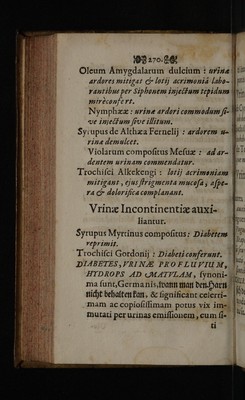 270.
Oleum Amygdalarum dulcium : urinæ
ardores mitigat & lotij acrimoniâ labo-
rantibus per Siphonem injectum tepidum
mirè confert.
Nymphææ : urinæ ardori commodum si-
ve injectum sive illitum.
Syrupus de Althæa Fernelij : ardorem u-
rinæ demulcet.
Violarum compositus Mesuæ : ad ar-
dentem urinam commendatur.
Trochisci Alkekengi : lotij acrimoniam
mitigant, ejus strigmenta mucosa, aspe-
ra & dolorifica complanant.
Vrinæ Incontinentiæ auxi-
liantur.
Syrupus Myrtinus compositus : Diabetem
reprimit.
Trochisci Gordonij : Diabeti conferunt.
DIABETES, VRINÆ PROFLUVIUM,
HYDROPS AD MATULAM, synoni-
ma sunt, Germanis, wann man den Harn
nicht behalten kan, & significant celerri-
mam ac copiosissimam potus vix im-
mutati per urinas emissionem, cum si-
ti